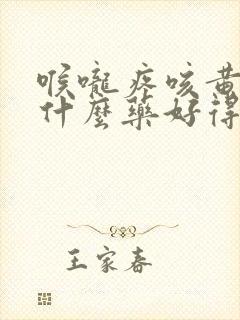 喉嚨疼咳黃
什麼藥好得
王家春